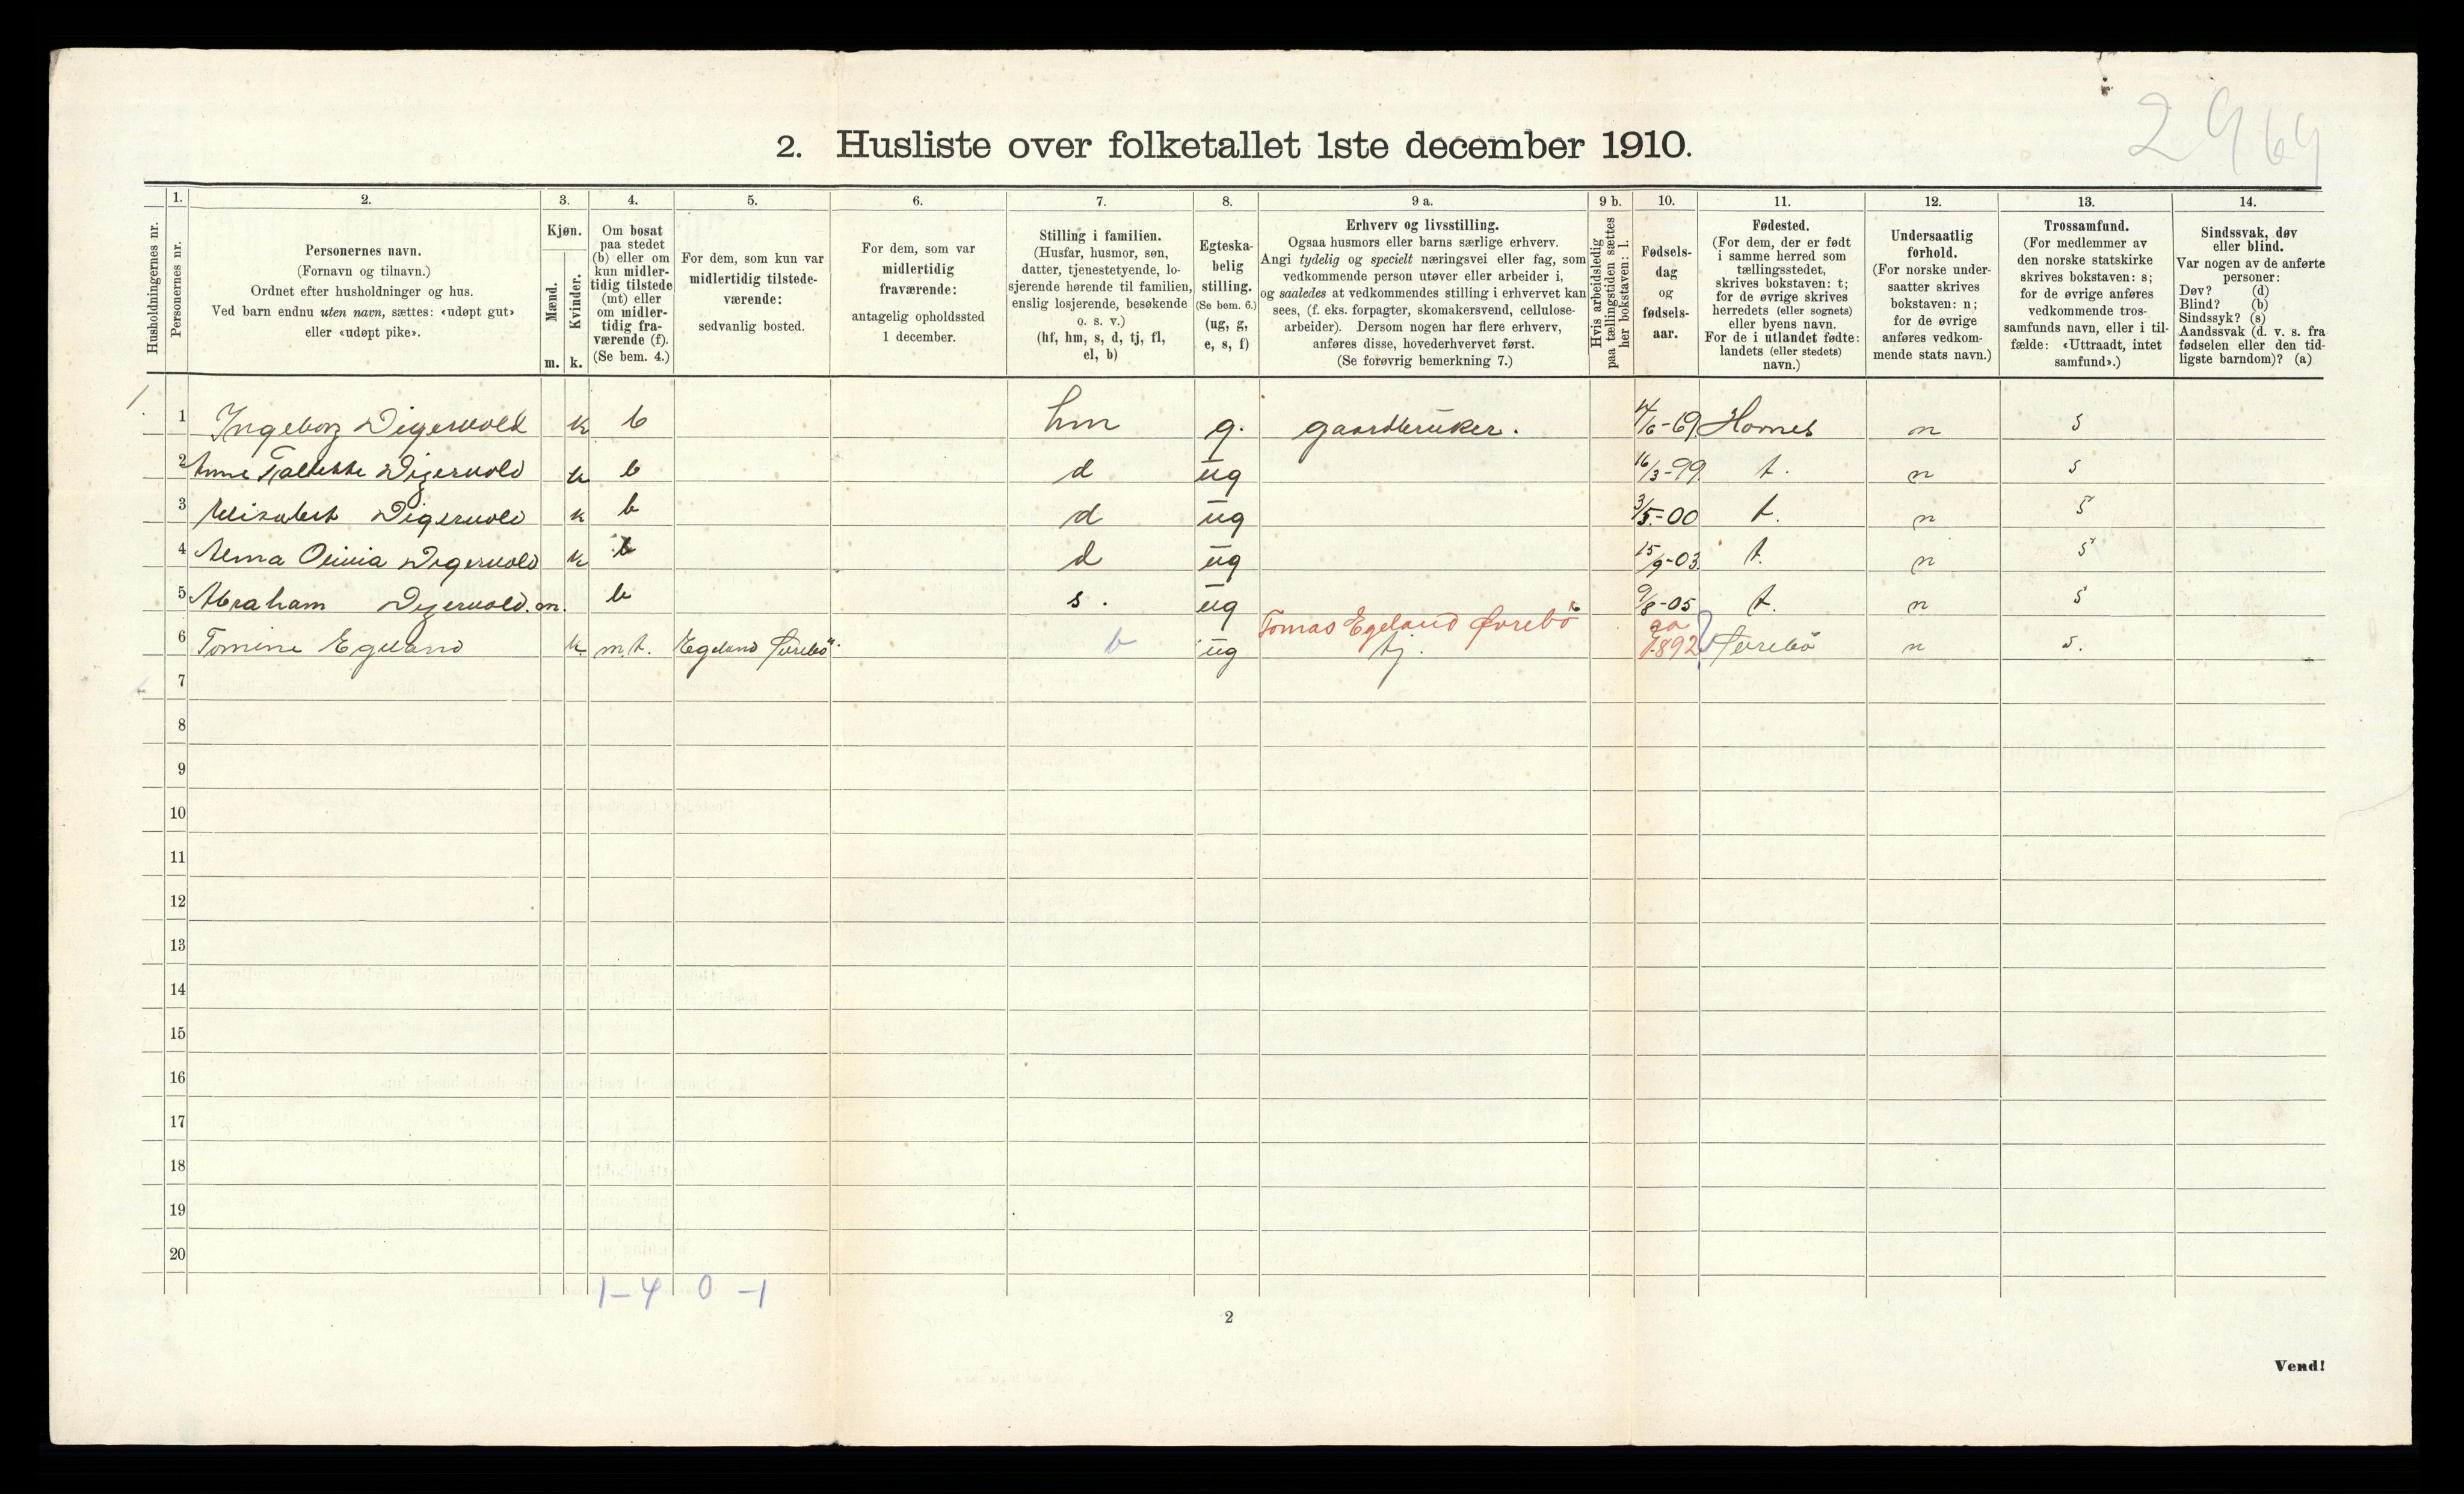 2969
2. Husliste over folketallet 1ste december 1910.
Husholdningernes nr.
1.
Personernes nr.
2.
Personernes navn.
(Fornavn og tilnavn.)
Ordnet efter husholdninger og hus.
Ved barn endnu uten navn, sættes: «udøpt gut»
eller «udøpt pike».
3.
Kjøn.
Mænd.
Kvinder.
m. k.
4.
Om bosat
paa stedet
(b) eller om
kun midler-
tidig tilstede
(mt) eller
om midler-
tidig fra-
værende (f).
(Se bem. 4.)
5.
For dem, som kun var
midlertidig tilstede-
værende:
sedvanlig bosted.
6.
For dem, som var
midlertidig
fraværende:
antagelig opholdssted
1 december.
7.
Stilling i familien.
(Husfar, husmor, søn,
datter, tjenestetyende, lo-
sjerende hørende til familien,
enslig losjerende, besøkende
o. s. v.)
(hf, hm, s, d, tj, fl,
el, b)
8.
Egteska-
belig
stilling.
(Se bem. 6.)
(ug, g,
e, s, f)
9 a.
Erhverv og livsstilling.
Ogsaa husmors eller barns særlige erhverv.
Angi tydelig og specielt næringsvei eller fag, som
vedkommende person utøver eller arbeider i,
og saaledes at vedkommendes stilling i erhvervet kan
sees, (f. eks. forpagter, skomakersvend, cellulose-
arbeider). Dersom nogen har flere erhverv,
anføres disse, hovederhvervet først.
(Se forøvrig bemerkning 7.)
9 b.
Hvis arbeidsledig
paa tællingstiden sættes
her bokstaven: l.
10.
Fødsels-
dag
og
fødsels-
aar.
11.
Fødested.
(For dem, der er født
i samme herred som
tællingsstedet,
skrives bokstaven: t;
for de øvrige skrives
herredets (eller sognets)
eller byens navn.
For de i utlandet fødte:
landets (eller stedets)
navn.)
12.
Undersaatlig
forhold.
(For norske under-
saatter skrives
bokstaven: n;
for de øvrige
anføres vedkom-
mende stats navn.)
13.
Trossamfund.
(For medlemmer av
den norske statskirke
skrives bokstaven: s;
for de øvrige anføres
vedkommende tros-
samfunds navn, eller i til-
fælde: «Uttraadt, intet
samfund».)
14.
Sindssvak, døv
eller blind.
Var nogen av de anførte
personer:
Døv? (d)
Blind? (b)
Sindssyk? (s)
Aandssvak (d. v. s. fra
fødselen eller den tid-
ligste barndom)? (a)
1. 1 Ingeborg Digervold k b hm g. gaardbruker. 4/6-69 Hornes n s
2 Anne Digervold k b d ug 16/3-99 t. n s
3 Digervold k b d ug 3/5-00 t. n s
4 Alma Olivia Digervold k b d ug 15/9-03 t. n s
5 Abraham Digervold. m. b s. ug 9/8-05 t. n s
Tomas Egeland Øvrebö
6 Tomine Egeland k. m.t. Egeland Øvrebö. b ug tj. 1892 ? Øvrebö n s.
7
8
9
10
11
12
13
14
15
16
17
18
19
20
1-4 0-1
2
Vend!